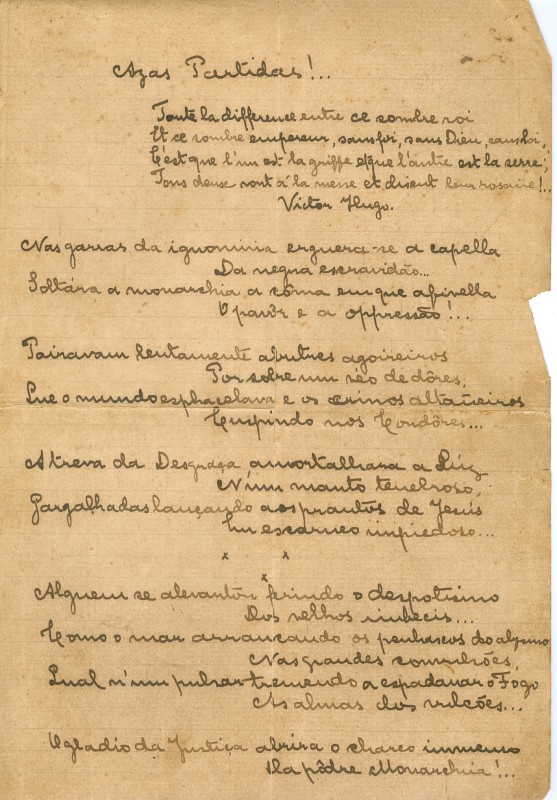 Azas Partidas!...
Toute la difference entre ce sombre roi
Et ce sombre empereur, sans foi, sans Dieu, sans loi,
C'est que l'un est la griffe et que l'autre est la serre;
Tous deux vont à la messe et disent leur rosaire!..
Victor Hugo.
Nas garras da ignominia erguera-se a capella
Da negra escravidão...
Soltára a monarchia a côma em que afivella
O pavôr e a oppressão!...
Pairavam lentamente abutres agoireiros
Por sobre um céo de dôres,
Que o mundo esphacelava e os cumes altaneiros
Cuspindo nos Condôres...
A treva da Desgraça amortalhara a Luz
N'um manto tenebroso,
Gargalhadas lançando aos prantos de Jesus
Em escarneo impiedoso...
x x
x
Alguem se alevantou ferindo o despotismo
Dos velhos imbecis...
Como o mar arrancando os penhascos do abysmo
Nas grandes convulsões,
Qual n'um pulsar tremendo a espadanar o Fogo
As almas dos vulcões...
O gladio da Justiça abrira o charco immenso
Da pôdre Monarchia!...